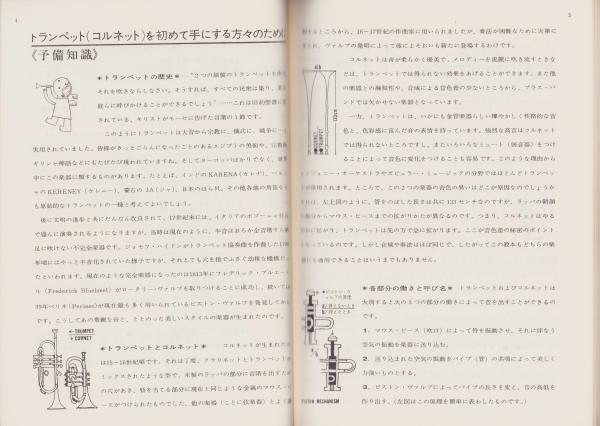 4
トランペット(コルネット)を初めて手にする方々のために
《予備知識》
＊トランペットの歴史＊ “2つの銀製のトランペットを作り
それを吹きならしなさい。そうすれば、すべての民衆は集り、
彼らに呼びかけることができるでしょう”——これは旧約聖書に
されている、キリストがモーゼに告げた言葉の1節です。
このようにトランペットは大昔から宗教に、儀式に、戦争に
実用されていました。皆様がきっとごらんになったことのあるエジプトの美術や、宗教
ギリシャ神話などにもたびたび現われていますね。そしてヨーロッパばかりでなく、世界
中にこの楽器に類するものがあります。たとえば、インドのKARENA(カレナ)、ペル
ャのKERENEY(ケレニー)、蒙古のJA(ジャ)、日本のほら貝、その他各地の角笛など
も原始的なトランペットの一種と考えてよいでしょう。
後に文明の進歩と共にだんだん改良されて、17世紀末には、イタリアのボローニャ
で盛んに演奏されるようになりますが、当時は現在のように、半音はおろか全音階すら
足に吹けない不完全楽器です。ジョセフ・ハイドンがトランペット協奏曲を作曲した17
年頃にはやっと半音化されていた様子ですが、それとても穴を指でふさぐ幼稚な機構だ
たといわれます。現在のような完全楽器になったのは1813年にフレデリック・ブルエー
ル(Frederick Bluehmel)がロータリー・ヴァルブを取りつけることに成功し、続いて
39年ペリネ(Perinet)が現在最も多く用いられているピストン・ヴァルブを発見してか
です。こうしてあの華麗な音と、ととのった美しいスタイルの楽器が生まれたのです。
←TRUMPET
CORNET
＊トランペットとコルネット＊ コルネットが生まれた
は15〜16世紀頃です。それは丁度、クラリネットとトランペットが
ミックスされたような型で、木製のラッパの部分に音階を出すた
の穴があき、唇を当てる部分に現在と同じような金属のマウス・ピ
ースがつけられたものでした。他の楽器(ことに弦楽器)とよく
5
するところから、16〜17世紀の作曲家に用いられましたが、奏法が困難なために次第に
され、ヴァルブの発明によって後によそおいも新たに登場するわけです。
コルネットは音が柔らかく優美で、メロディーを流麗に吹き流すときな
どは、トランペットでは得られない効果をあげることができます。また他
の楽器との融和性や、音域による音色差の少ないところから、ブラス・バ
ンドでは欠かせない楽器となっています。
一方、トランペットは、いかにも金管楽器らしい輝やかしく性格的な音
色と、色彩感に富んだ音の表情を持っています。強烈な高音はコルネット
では得られないところですし、またいろいろなミュート(弱音器)をつけ
ることによって音色に変化をつけることも容易です。このような理由から
ンフォニー・オーケストラやポピュラー・ミュージックの分野ではほとんどトランペッ
が使用されます。ところで、この2つの楽器の音色の異いはどこが原因なのでしょうか
それは、左上図のように、管をのばした長さは共に133センチなのですが、ラッパの朝顔
の部分からマウス・ピースまでの拡がりかたが異るのです。つまり、コルネットはゆる
かに拡がり、トランペットは先の方で急に拡がります。ここが音色差の秘密のポイント
なっているのです。しかし音域や奏法はほぼ同じで、したがってこの教本もどちらの楽
にも適用できることはいうまでもありません。
TRUMPET
CORNET
133cm
＊各部分の働きと呼び名＊ トランペットおよびコルネットは
大別すると次の3つの部分の働きによって音を出すことができるの
です。
1. マウス・ピース(吹口)によって唇を振動させ、それに伴なう
空気の振動を楽器に送り込む。
2. 送り込まれた空気の振動をパイプ(管)の共鳴によって美しく
力強いものとする。
3. ピストン・ヴァルブによってパイプの長さを変え、音の高低を
作り出す。(左図はこの原理を簡単に表わしたものです。)
ピストン・ヴ
ァルブの原理
PISTON MECHANISM